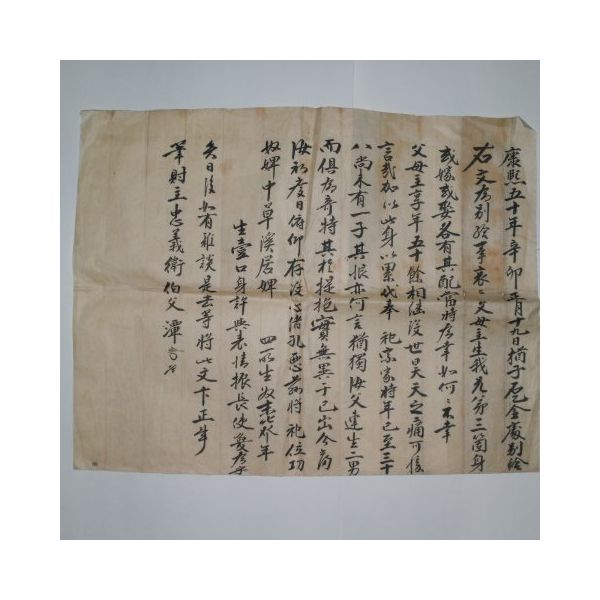 康熙五十年辛卯正月十九日猶子 金處別給
右文爲別給事哀哀父母主生我 弟三箇身
或嫁或娶各有其配當時 幸如何不幸
父母主享年五十餘相繼沒世昊天之痛可勝
言哉加以此身以累代奉祀宗家將年已至三十
八尙未有一子其恨亦何言猶獨汝父連生二男
而俱爲奇特其於提抱實無異于己出今爲
汝 度日俯仰存沒心緖孔悪 將祀位功
奴婢中草溪居婢 四所生奴 年
生壹口身許與表情振長使愛爲乎
矣日後如有雜談是去等將此文卞正事
筆財主忠義衛伯父潭